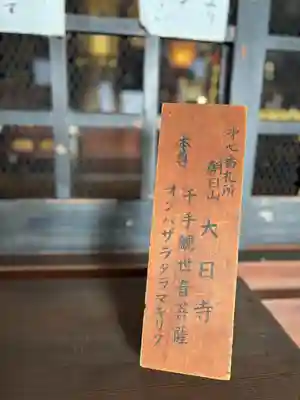 番札所
朝日山
大日寺
本尊
千手観世音菩薩
オンバザラタラマキリク